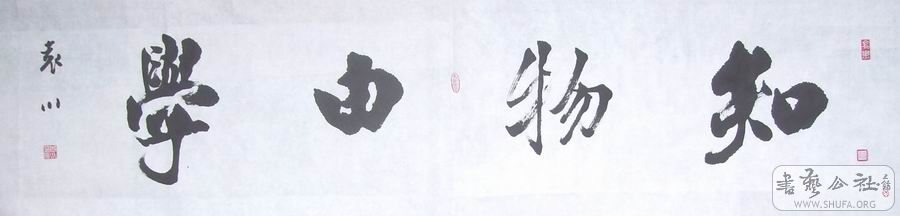 知物由學
袁川
書藝公社
WWW.SHUFA.ORG